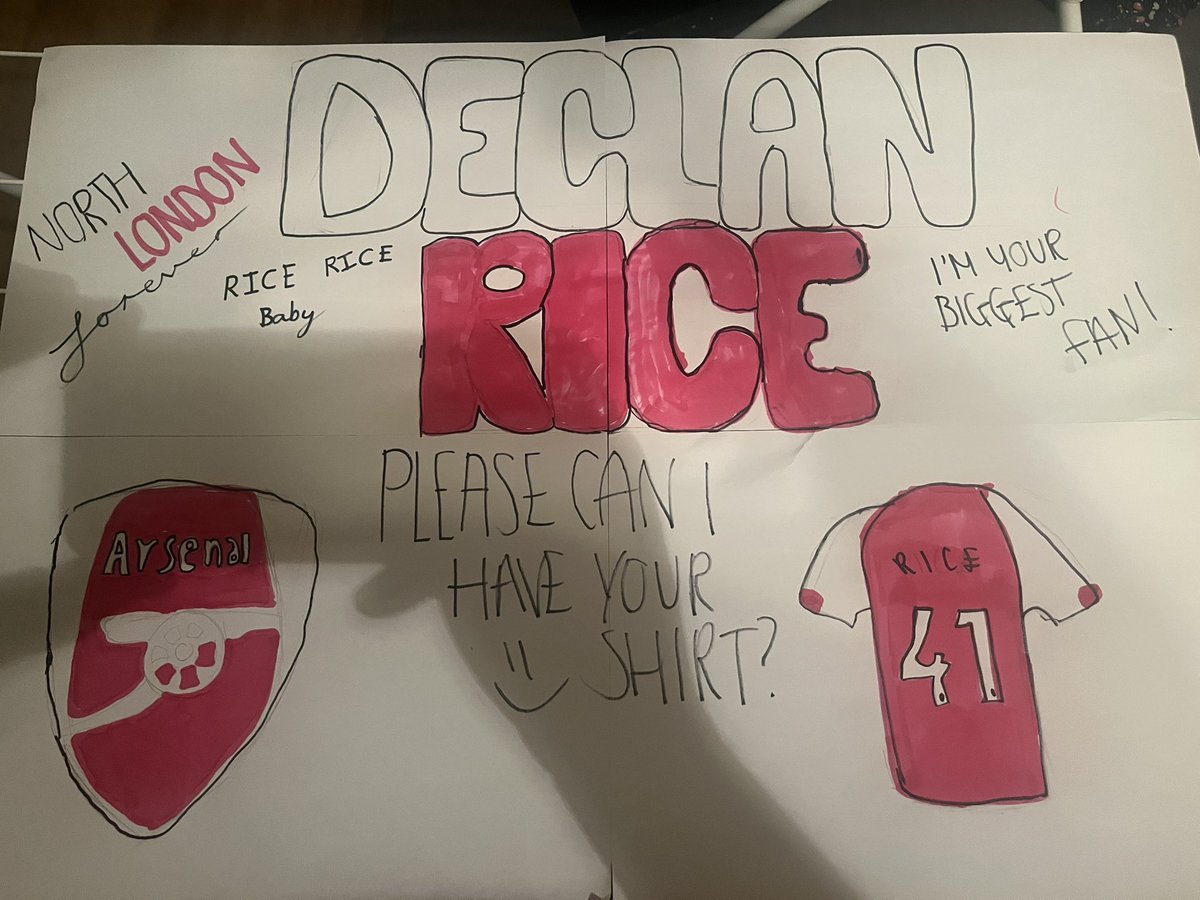 DECLAN
RICE
NORTH
LONDON
forever
RICE RICE
Baby
I'M YOUR
BIGGEST
FAN!
PLEASE CAN I
HAVE YOUR
SHIRT?
Arsenal
RICE
41